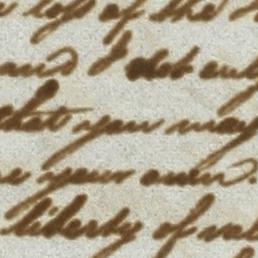 loss of the
and I do not
that you may
your own.
liberty of